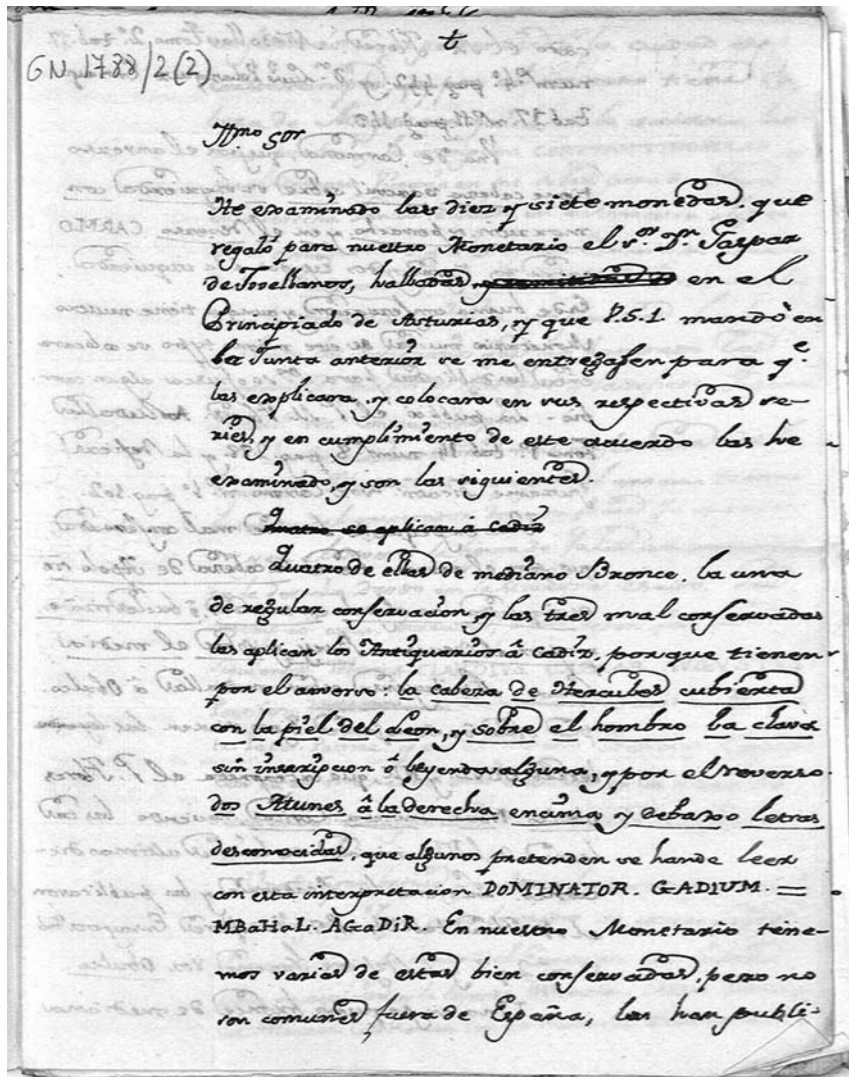 †
GN 1788/2(2)
Yltmo Sor
He examinado las diez y siete monedas, que
regaló para nuestro Monetario el Sr. Dn. Gaspar
de Jovellanos, halladas, en el
Principiado de Asturias, y que V.S.I. mandò en
la Junta anterior se me entregasen para qe.
las explicara, y colocara en sus respectivas se-
ries, y en cumplimiento de este acuerdo las he
examinado, y son las siguientes.
Quatro se aplican á Cadiz
Quatro de ellas de mediano Bronce, la una
de regular conservacion, y las tres mal conservadas
las aplican los Antiquarios â Cadiz, porque tienen
por el anverso: la cabeza de Hercules cubierta
con la piel del Leon, y sobre el hombro la clava
sin inscripcion ô leyenda alguna, y por el reverso
dos Atunes â la derecha encima y debaxo letras
desconocidas, que algunos pretenden se han de leer
con esta interpretacion DOMINATOR. GADIUM. =
MBaHaL. AGaDiR. En nuestro Monetario tene-
mos varias de estas bien conservadas, pero no
son comunes fuera de España, las han publi-